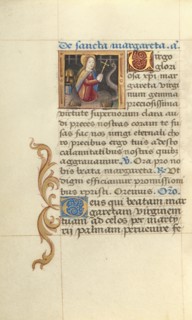 De sancta margareta. a.
Virgo
glori
osa xpi mar
gareta virgi
num gemma
preciosissima
virtute supernorum clara au
di preces nostras coram te fu
sas fac nos iungi eternali cho
ro precibus ergo tuis adesto
calamitatibus nostris quibus
aggravamur. V. Ora pro no
bis beata margareta. R. Ut
digni efficiamur promissioni
bus xpristi. Oremus. Oro.
Deus qui beatam mar
garetam virginem
tuam ad celos per marty
rii palmam pervenire fe